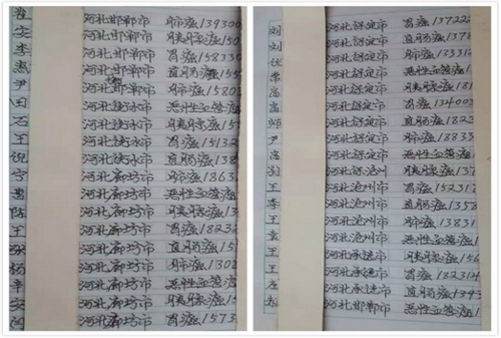 河北邯郸市 肺癌139300
安 河北邯郸市 胰腺癌150
李 河北邯郸市 胃癌158330
燕 河北邯郸市 直肠癌15
尹 河北邯郸市 肺癌15803
田 河北衡水市 恶性
石 河北衡水市 胰腺癌15
王 河北衡水市 胃癌15132
倪 河北衡水市 直肠癌138
宁 河北廊坊市 肺癌18632
曹 河北廊坊市 恶性
陈 河北廊坊市 胰腺癌135
王 河北廊坊市 胃癌18232
王 河北廊坊市 直肠癌15
河北廊坊市 肺癌1302
杨 河北廊坊市 恶性
辛 河北廊坊市 胰腺癌15
河北廊坊市 胃癌1573
刘 河北保定市 胃癌137222
刘 河北保定市 直肠癌1378
河北保定市 肺癌13331
李 河北保定市 恶性
高 河北保定市 胰腺癌181
高 河北保定市 胃癌134008
师 河北保定市 直肠癌18
尹 河北保定市 肺癌18833
河北保定市 恶性
河北 胰腺癌137
王 河北沧州市 胃癌15231
李 河北沧州市 直肠癌1358
王 河北沧州市 肺癌13831
袁 河北沧州市 恶性
王 河北承德市 胰腺癌156
王 河北承德市 胃癌182314
河北承德市 直肠癌1393
河北邯郸市 恶性